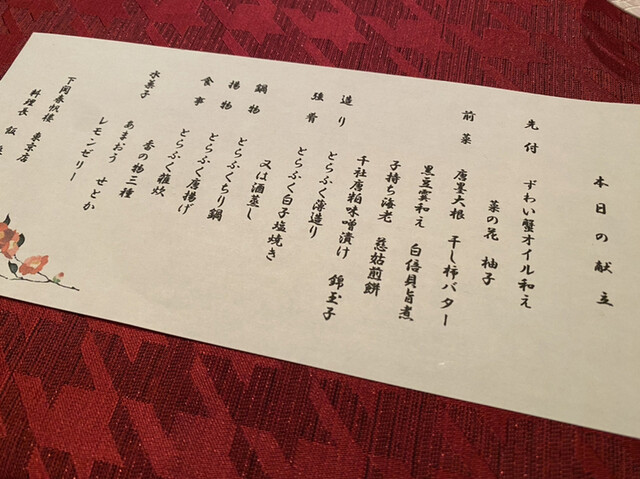 本日の献立
先付 ずわい蟹オイル和え
菜の花 柚子
前菜 唐墨大根 干し柿バター
黒豆霙和え 白倍貝旨煮
子持ち海老 慈姑煎餅
千社唐粕味噌漬け 錦玉子
造り とらふく薄造り
強肴 とらふく白子塩焼き
鍋物 とらふくちり鍋
又は酒蒸し
揚物 とらふく唐揚げ
食事 とらふく雑炊
香の物三種
水菓子 あまおう せとか
レモンゼリー
下関春帆楼 東京店
料理長